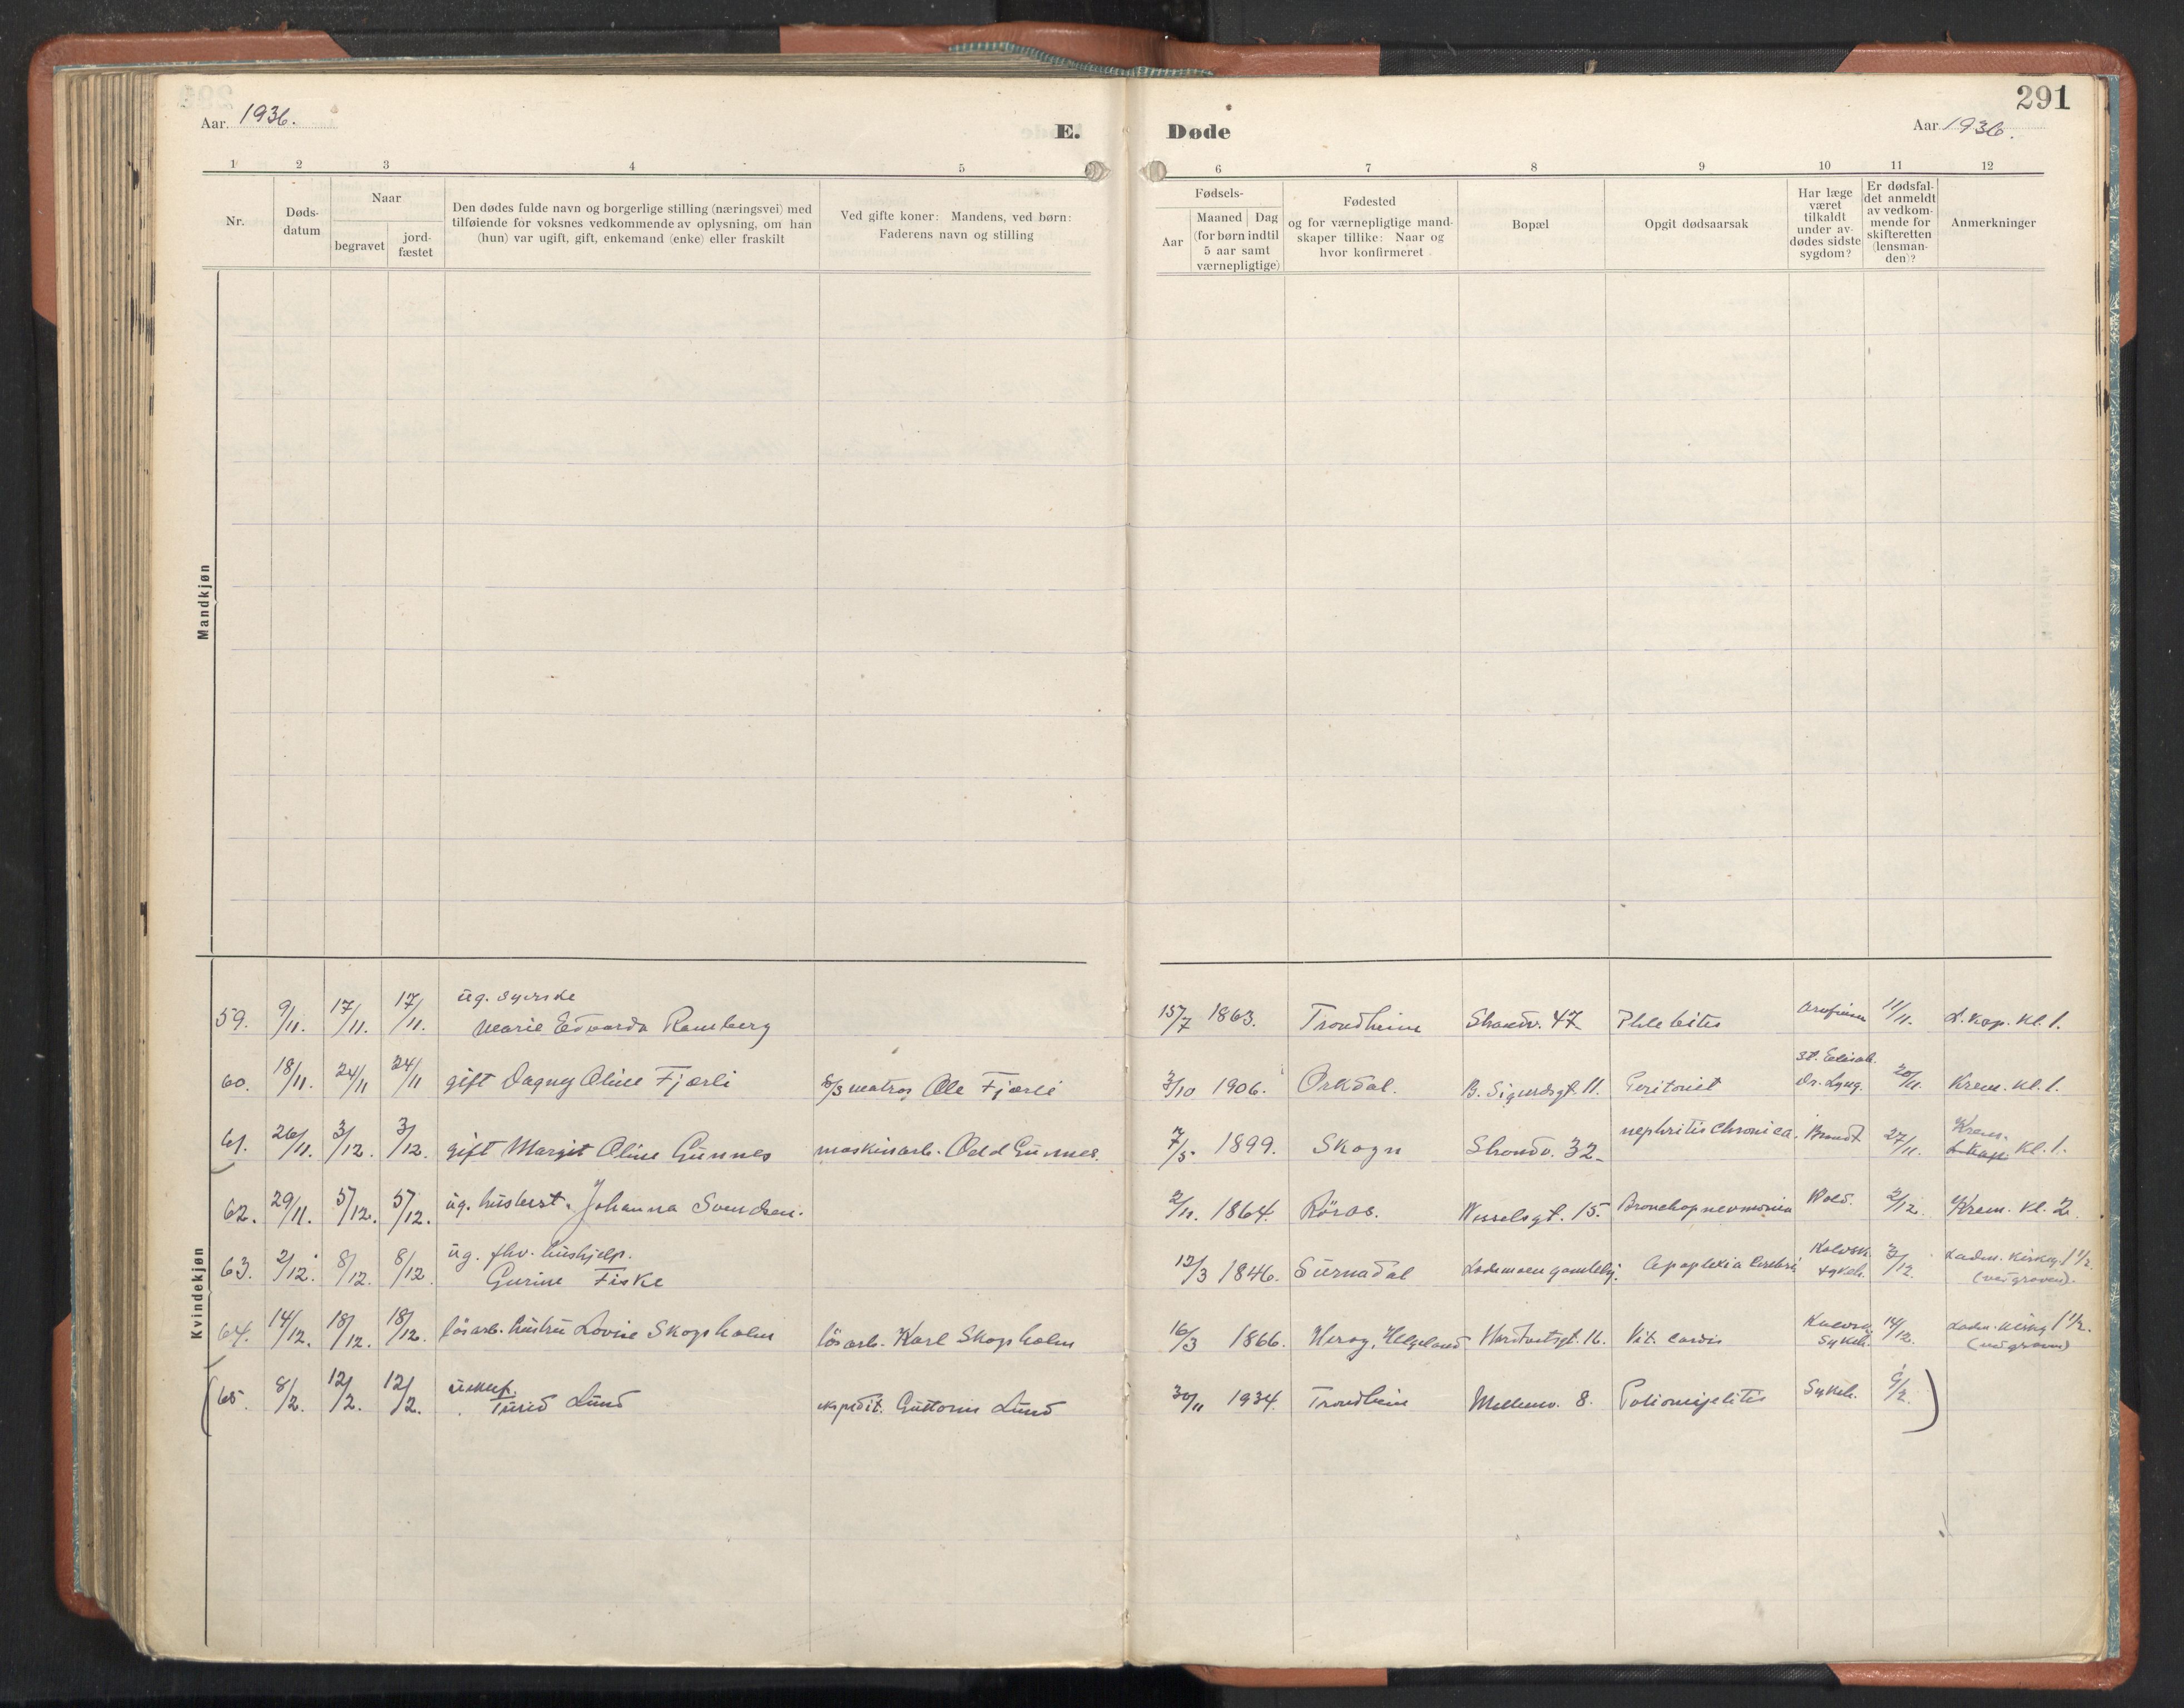 291
Aar 1936.
E. Døde
Aar 1936.
1 2 3 4 5 6 7 8 9 10 11 12
Nr.
Døds-
datum
Naar
begravet
jord-
fæstet
Den dødes fulde navn og borgerlige stilling (næringsvei) med
tilføiende for voksnes vedkommende av oplysning, om han
(hun) var ugift, gift, enkemand (enke) eller fraskilt
Ved gifte koner: Mandens, ved børn:
Faderens navn og stilling
Fødsels-
Aar
Maaned Dag
(for børn indtil
5 aar samt
værnepligtige)
Fødested
og for værnepligtige mand-
skaper tillike: Naar og
hvor konfirmeret
Bopæl
Opgit dødsaarsak
Har læge
været
tilkaldt
under av-
dødes sidste
sygdom?
Er dødsfal-
det anmeldt
av vedkom-
mende for
skifteretten
(lensman-
den)?
Anmerkninger
Mandkjøn
Kvindekjøn
ug. syerske
59. 9/11. 17/11. 17/11. Marie Edvarda Ramberg 15/7 1863. Trondheim Strandv. 47 Phlebitis 11/11. L. kap. Kl. 1.
St. Elisab.
60. 18/11. 24/11 24/11 gift Dagny Oline Fjærli matros Ole Fjærli 3/10 1906. Orkdal. B. Sigurdsgt. 11. Peritonit Dr. Lyng. 20/11. Krem. Kl. 1.
Krem.
61. 26/11. 3/12. 3/12. gift Margit Oline Gunnes maskinarb. Odd Gunnes. 7/5 1899. Skogn Strandv. 32 nephritis chronica. Brandt 27/11. L. kap. Kl. 1.
62. 29/11. 5/12. 5/12. ug. husbest. Johanna Svendsen. 2/11. 1864. Röros. Wesselsgt. 15. Bronchopneumonia Wold. 2/12. Krem. Kl. 2.
ug. fhv. hushjelp.
63. 2/12. 8/12. 8/12. Gurine Fiske 12/3 1846. Surnadal Lademoen gamlehj. Apoplexia cerebri sykeh. 3/12. Ladm. kirkeg. 1 1/2.
(ved graven).
64. 14/12. 18/12. 18/12. lösarb. hustru Lovise Skogsholm lösarb. Karl Skogsholm 16/3 1866. Heröy, Helgeland 16. Vit. cordis sykeh. 14/12. Ladm. kirkeg 1 1/2.
(ved graven)
(65. 8/2. 12/2. 12/2. Turid Lund ekspedit. Guttorm Lund 30/11 1934. Trondheim Mellemv. 8. Poliomyelitis Sykeh. 9/2. )